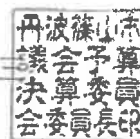 丹波篠山市
議会予算
決算委員
会委員長